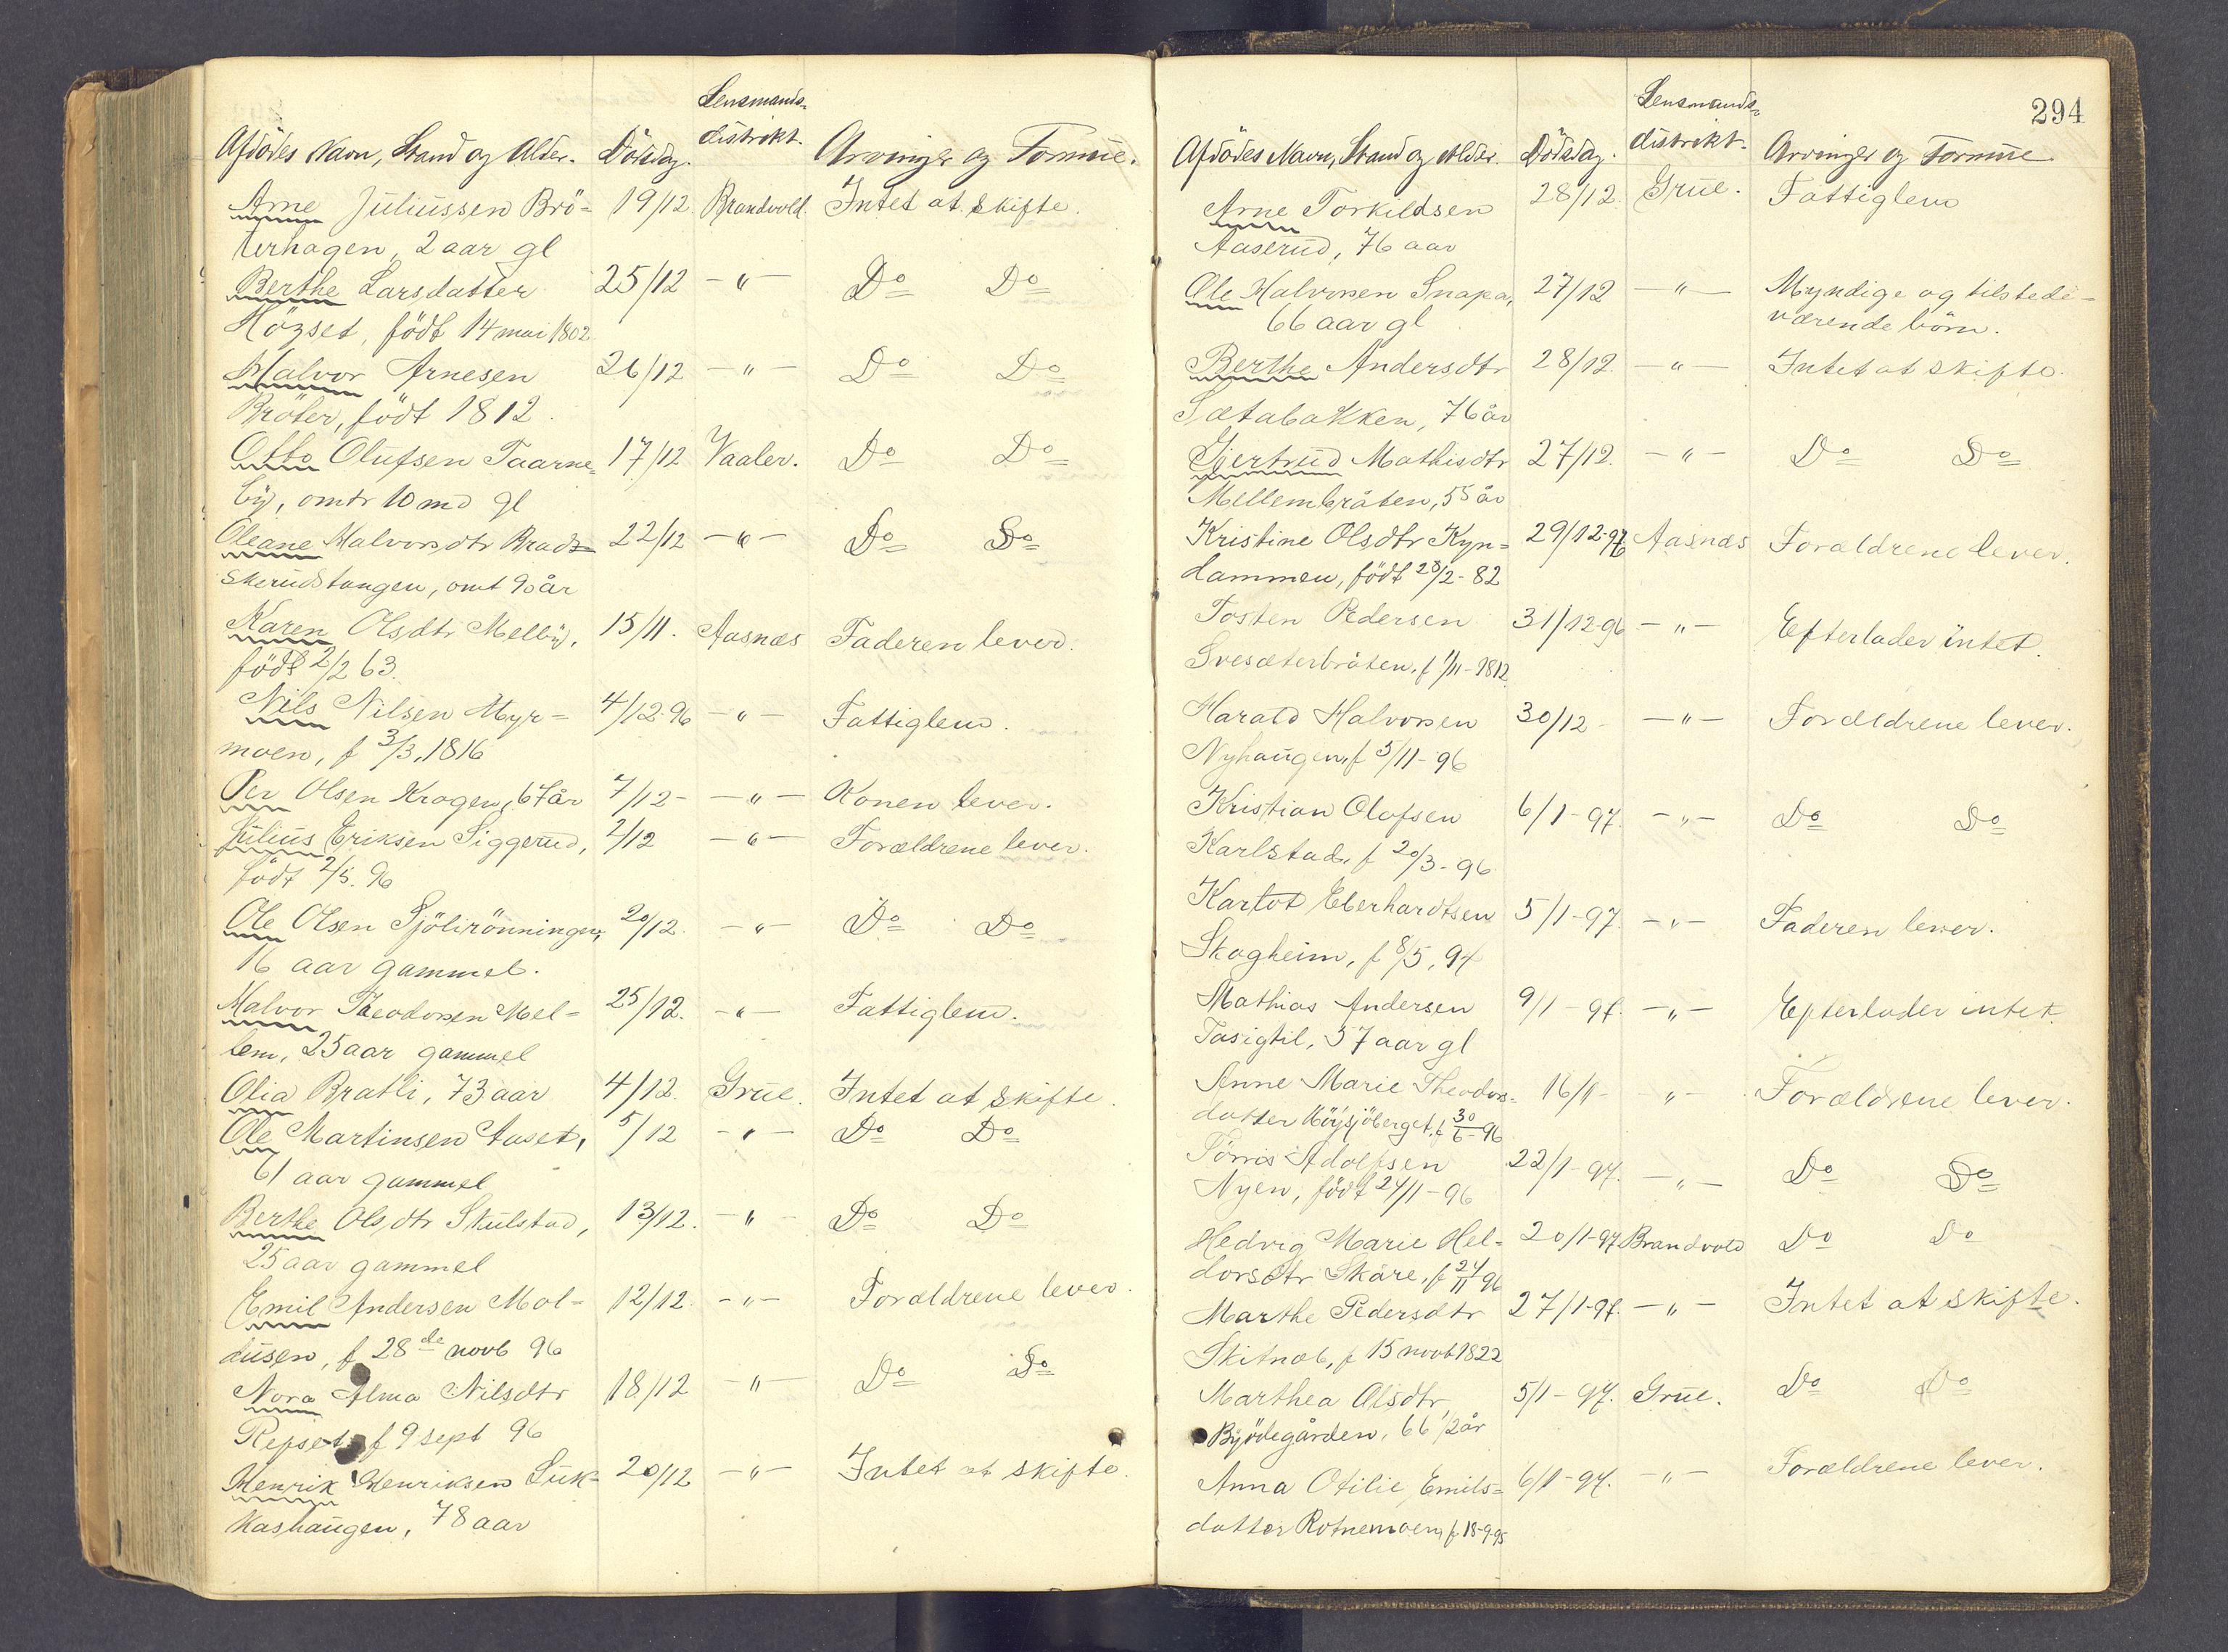 Lensmands-
Afdödes Navn, Stand og Alder. Dödsdag. distrikt. Arvinger og Formue.
Arne Juliussen Brö= 19/12. Brandvold. Intet at skifte.
terhagen, 2 aar gl
Berthe Larsdatter 25/12 -"- Do Do
Högset, födt 14 mai 1802
Halvor Arnesen 26/12 -"- Do Do
Bröter, födt 1812.
Otto Olufsen Taarne= 17/12 Vaaler. Do Do
by, omtr 10 md gl
Oleane Halvorsdtr Brads= 22/12 -"- Do Do
kerudstangen, omt 90 år
Karen Olsdtr Melby, 15/11. Aasnæs Faderen lever.
födt 2/2 63.
Nils Nilsen Myr= 4/12-96 -"- Fattiglem.
moen, f 3/3, 1816
Per Olsen Kragen, 67 år 7/12- -"- Konen lever.
Julius Eriksen Siggerud, 2/12 -"- Forældrene lever.
födt 2/5. 96
Ole Olsen Sjölirönningen, 20/12. -"- Do Do
16 aar gammel.
Halvor Theodorsen Mel= 25/12. -"- Fattiglem.
lem, 25 aar gammel
Olia Bratli, 73 aar 4/12. Grue. Intet at skifte.
Ole Martinsen Aaset, 5/12 -"- Do Do
61 aar gammel
Berthe Olsdtr Skulstad, 13/12. -"- Do Do
25 aar gammel
Emil Andersen Mol= 12/12. -"- Forældrene lever.
dusen, f 28de novb 96
Nora Alma Nilsdtr 18/12 -"- Do Do
Repset, f 9 sept 96
Henrik Henriksen Luk= 20/12 -"- Intet at skifte.
kashaugen, 78 aar
294
Lensmands-
Afdödes Navn, Stand og Alder. Dödsdag. distrikt. Arvinger og Formue
Arne Torkildsen 28/12. Grue. Fattiglem
Aaserud, 76 aar
Ole Halvorsen Snapa, 27/12 -"- Myndige og tilstede=
66 aar gl værende börn.
Berthe Andersdtr 28/12. -"- Intet at skifte.
Sætabakken, 76 år
Gjertrud Mathisdtr 27/12. -"- Do Do
Mellembråten, 55 år
Kristine Olsdtr Kyn= 29/12-96 Aasnæs Forældrene lever.
dammen, födt 28/2-82
Tosten Pedersen 31/12-96 -"- Efterlader intet.
Svesæterbråten, f 1/11-1812
Harald Halvorsen 30/12- -"- Forældrene lever.
Nyhaugen, f 5/11-96
Kristian Olafsen 6/1-97. -"- Do Do
Karlstad, f 20/3-96
Karlot Eberhardtsen 5/1-97. -"- Faderen lever.
Skogheim, f 8/5, 94
Mathias Andersen 9/1-97. -"- Efterlader intet.
57 aar gl
Anne Marie Theodors= 16/1- -"- Forældrene lever.
datter Höysjöberget, f 30/6-96
Törris Adolfsen 22/1-97. -"- Do Do
Nyen, födt 24/1-96
Hedvig Marie Hel= 20/1-97 Brandvold Do Do
dorsdtr Skåre, f 24/11 96
Marthe Pedersdtr 27/1-97. -"- Intet at skifte.
f 15 novb 1822
Marthea Olsdtr, 5/1-97. Grue. Do Do
Byödegården, 66 1/2 år
Anna Otilie Emils= 6/1-97. -"- Forældrene lever.
datter Rotnemoen, f 18-9-95